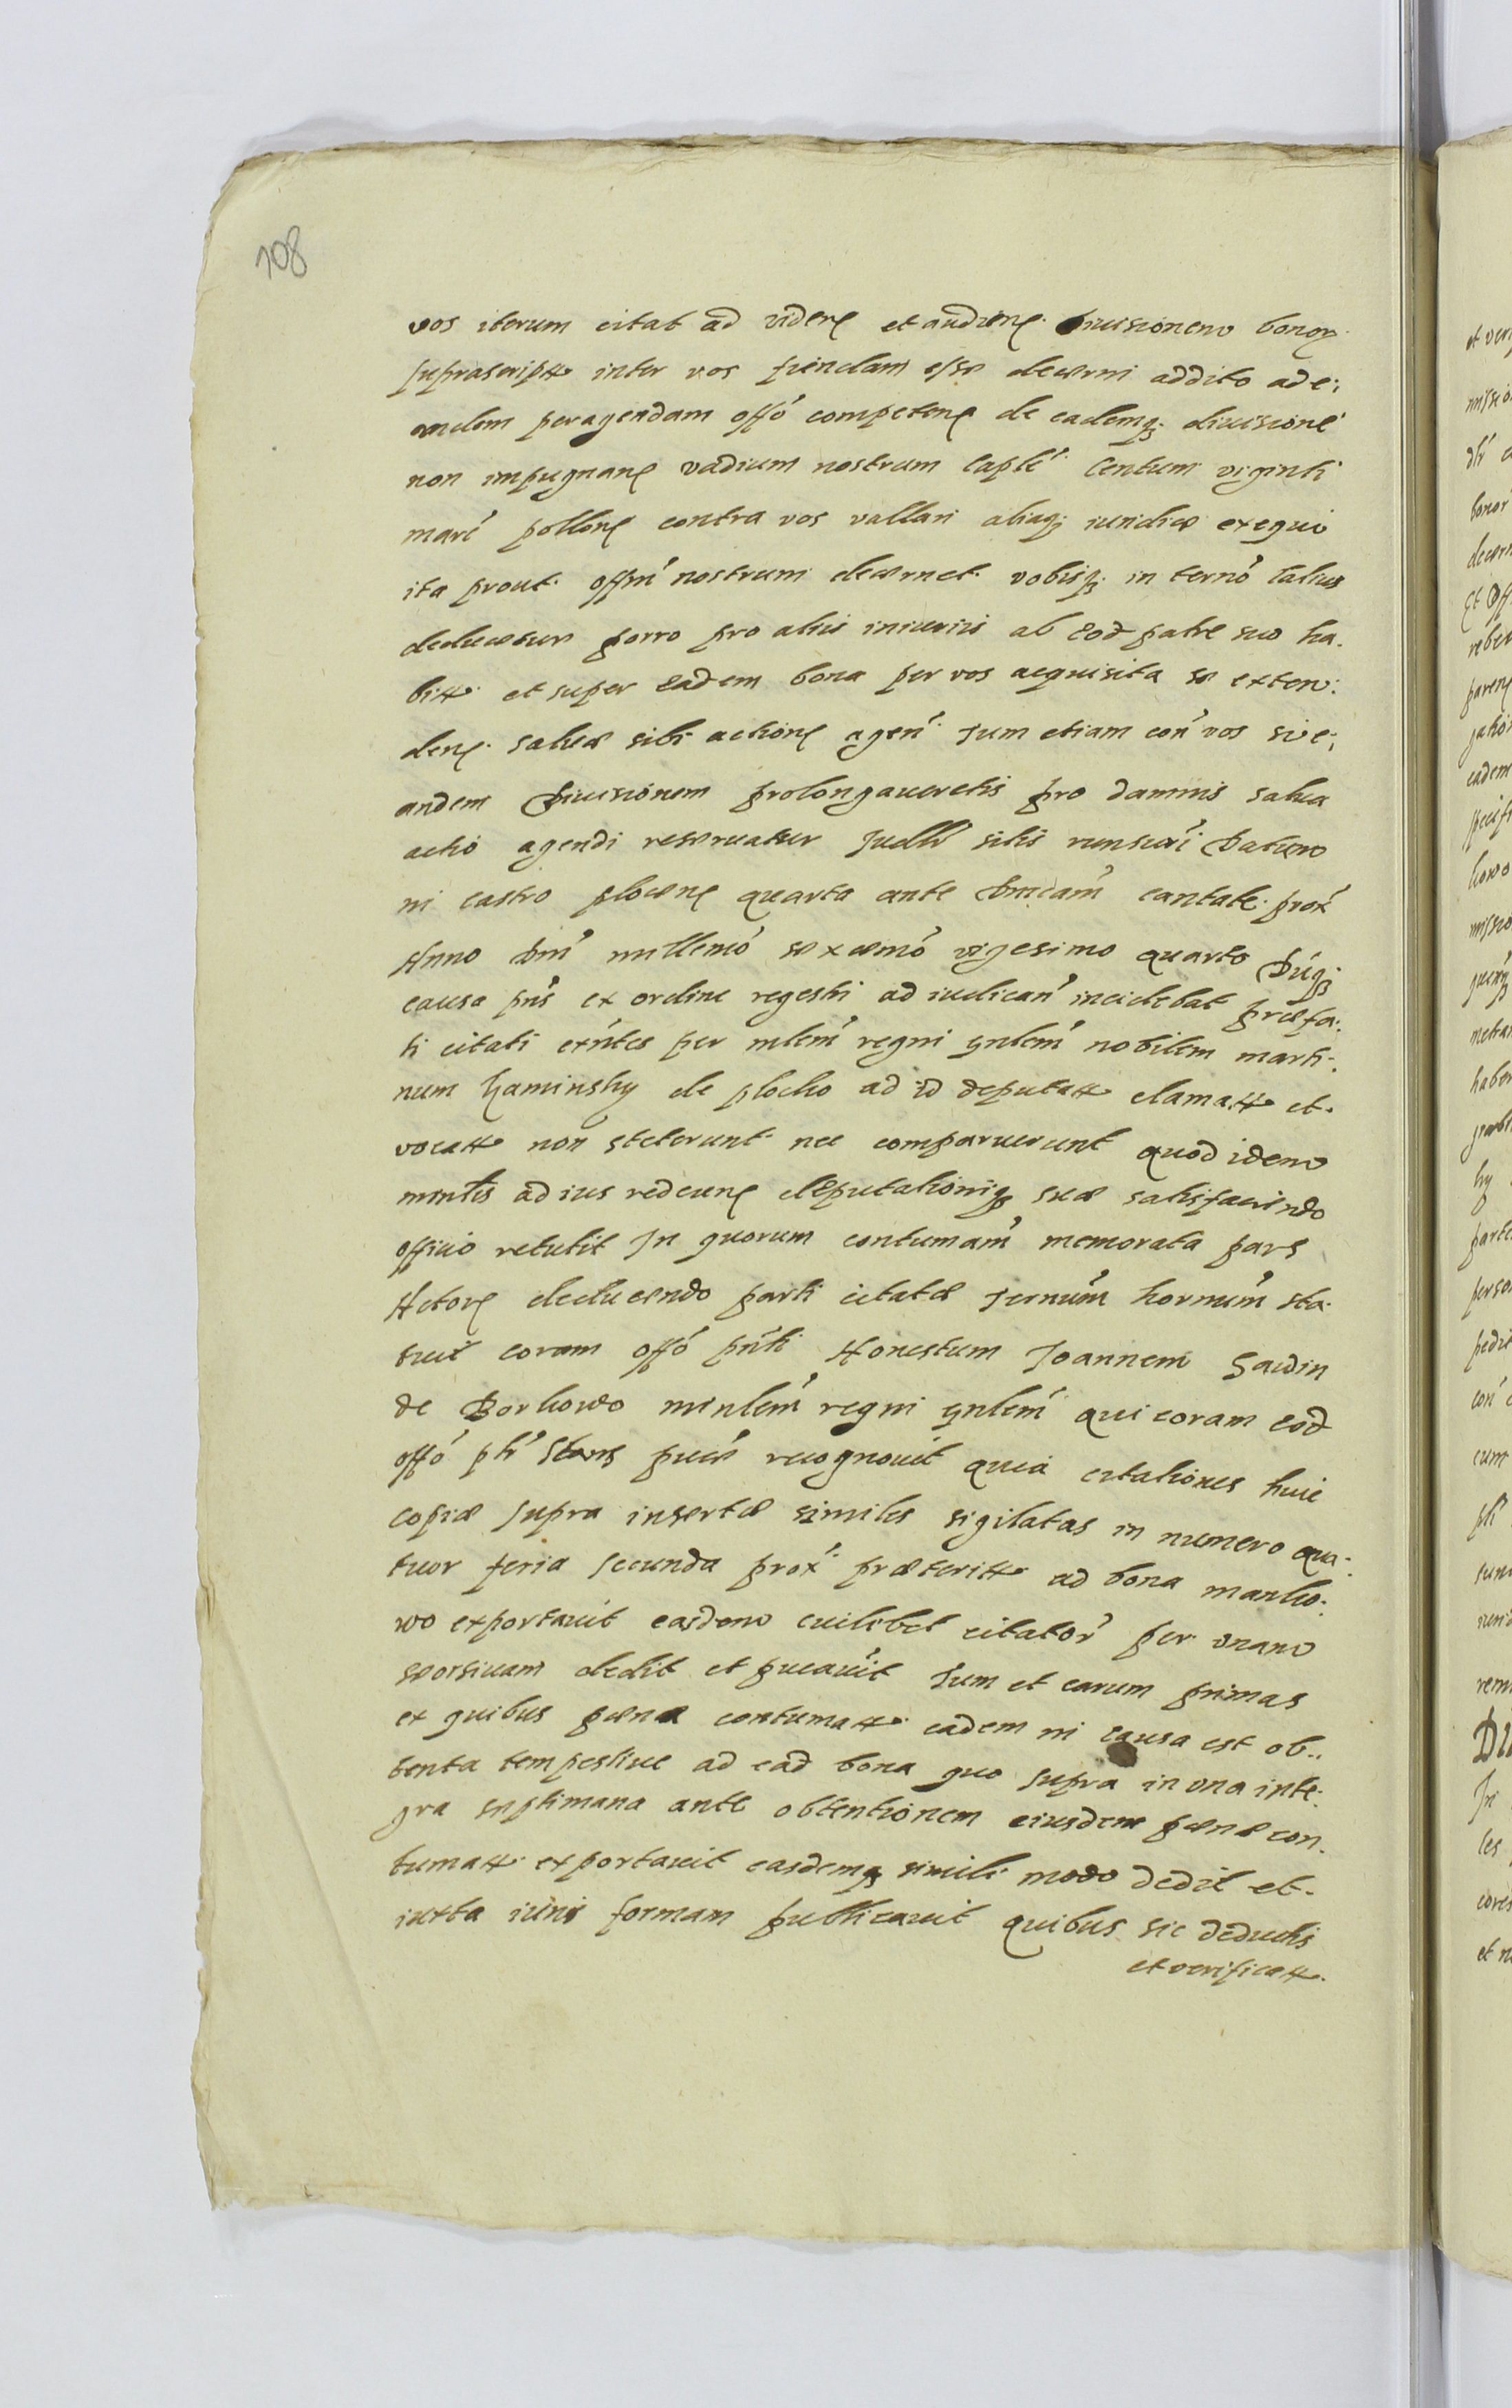 108
vos iterum citat ad viden͂ et audien͂ Diuisionem bonor
suprascript inter vos fiendam esse decerni addito ad e:
andem peragendam offó competen͂ de eademq; diuisione
non impugnan͂ vadium nostrum Caplé Centum viginti
marć pollon͂ contra vos vallari aliaq; iuridice exequi
ita prout offm̃ nostrum decernet vobisq; in termó latius
deducetur porro pro aliis iniuriis ab eod patre suo ha.
bit et super eadem bona per vos acquisita se exten:
den͂ saluā sibi action͂ agen Tum etiam con vos si e:
andem Diuisionem prolongaueretis pro damnis salua
actio agendi reseruatur Judlr sitis Datum
in castro plocen͂ quarta ante Dnicam cantate prox
Anno Dni millemo sexcemo vigesimo quarto Dúq;
causa pns ex ordine regestri ad iudican incidebat præfa:
ti citati exntes per mlem regni gnlem nobilem marti:
num Kaminsky de plocko ad id deputat clamat et
vocat non steterunt nec comparuerunt quod idem
minlis ad ius rediens deputationiq; suæ satisfaciendo
officio retulit In quorum contumam memorata pars
Actorę deducendo parti citatæ Termum hornum sta.
tuit coram offó pnti Honestum Joannem Sawin
de Borkowo minlem regni gnlem qui coram eod
offó plr Stans puce recognouit quia citationes huic
copiæ supra insertæ similes sigilatas in numero qua:
tuor feria secunda prox præterit ad bona manko:
wo exportauit easdem cuilibet citator per unam
seorsiuam dedit et pucauit Tum et earum primas
ex quibus pæna contumat eadem in causa est ob..
tenta tempestiue ad ead bona quo supra in una inte:
gra septimana ante obtentionem eiusdem pænæ con.
tumat exportauit easdemq; simili modo dedit et
iuxta iuris formam publicauit quibus sic deductis
et verificat